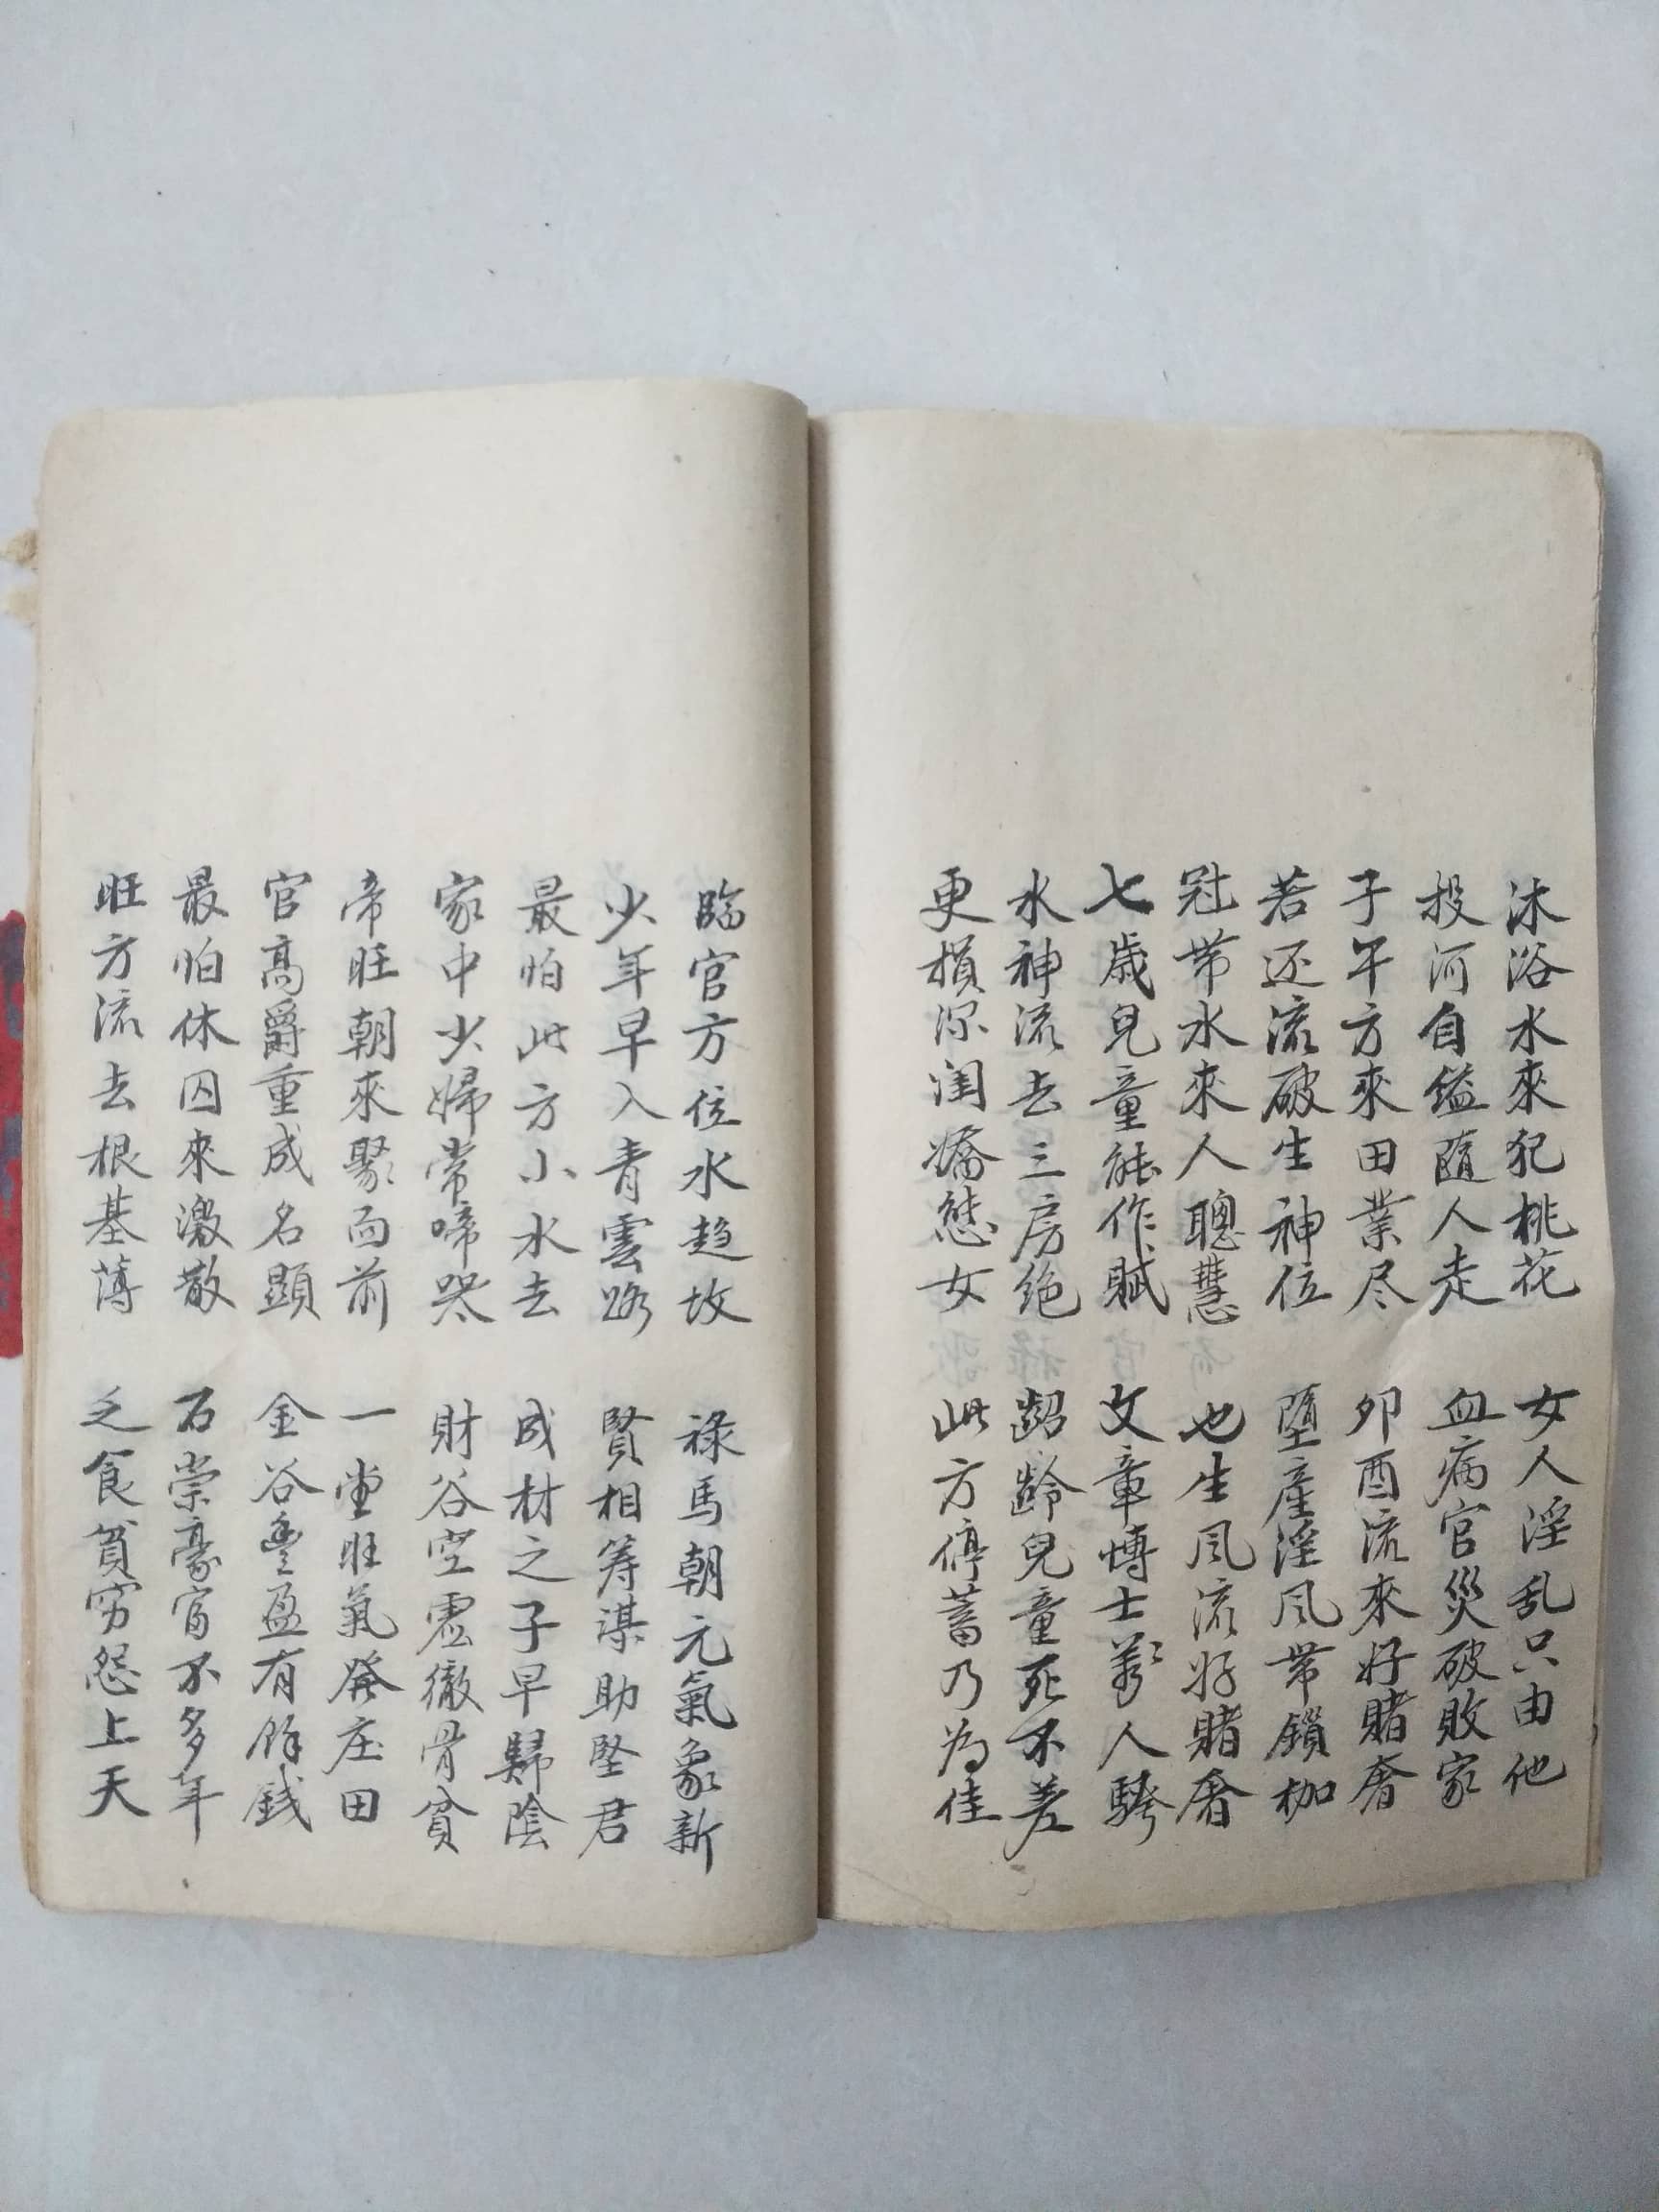 沐浴水來犯桃花 女人淫乱只由他
投河自缢隨人走 血病官災破敗家
子午方來田業尽 卯酉流來好賭奢
若还流破生神位 堕產淫风带鎖枷
冠带水來人聰慧 也生风流好賭奢
七歲兒童能作賦 文章博士萬人誇
水神流去三房绝 龆齡兒童死不差
更損深闺嬌態女 此方停蓄乃為佳
臨官方位水趋坟 禄馬朝元氣象新
少年早入青雲路 賢相筹谋助聖君
最怕此方小水去 成材之子早歸陰
家中少婦常啼哭 財谷空虛徹骨貧
帝旺朝來聚面前 一堂旺氣發庄田
官高爵重成名顕 金谷豊盈有餘銭
最怕休囚來激散 石崇豪富不多年
旺方流去根基薄 乏食貧穷怨上天